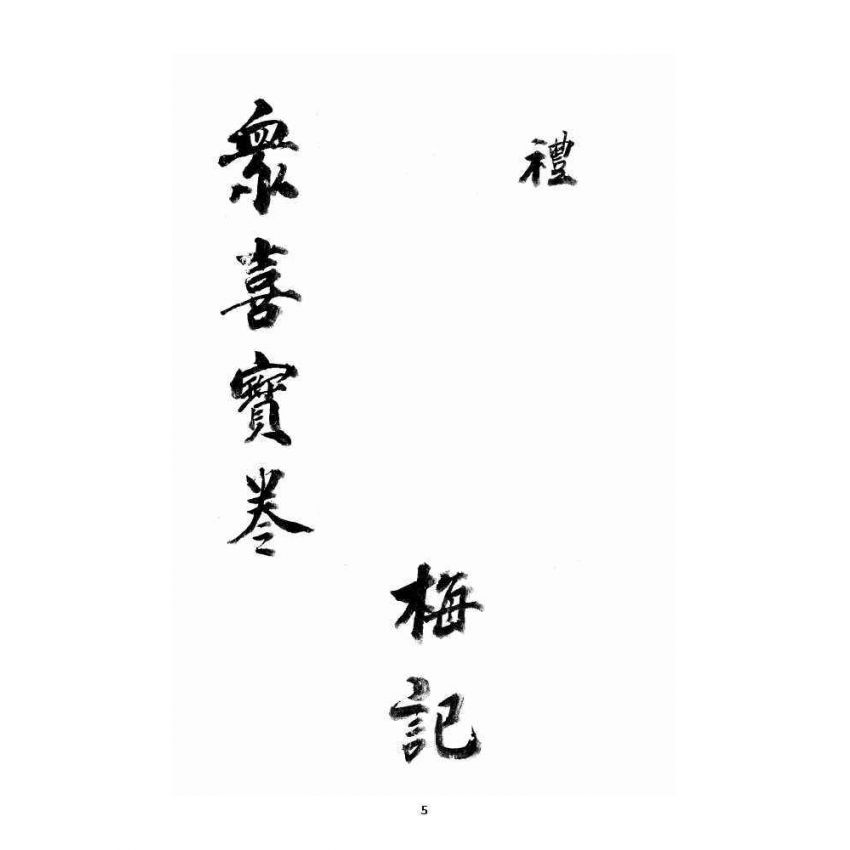 禮
梅記
眾喜寶卷
5